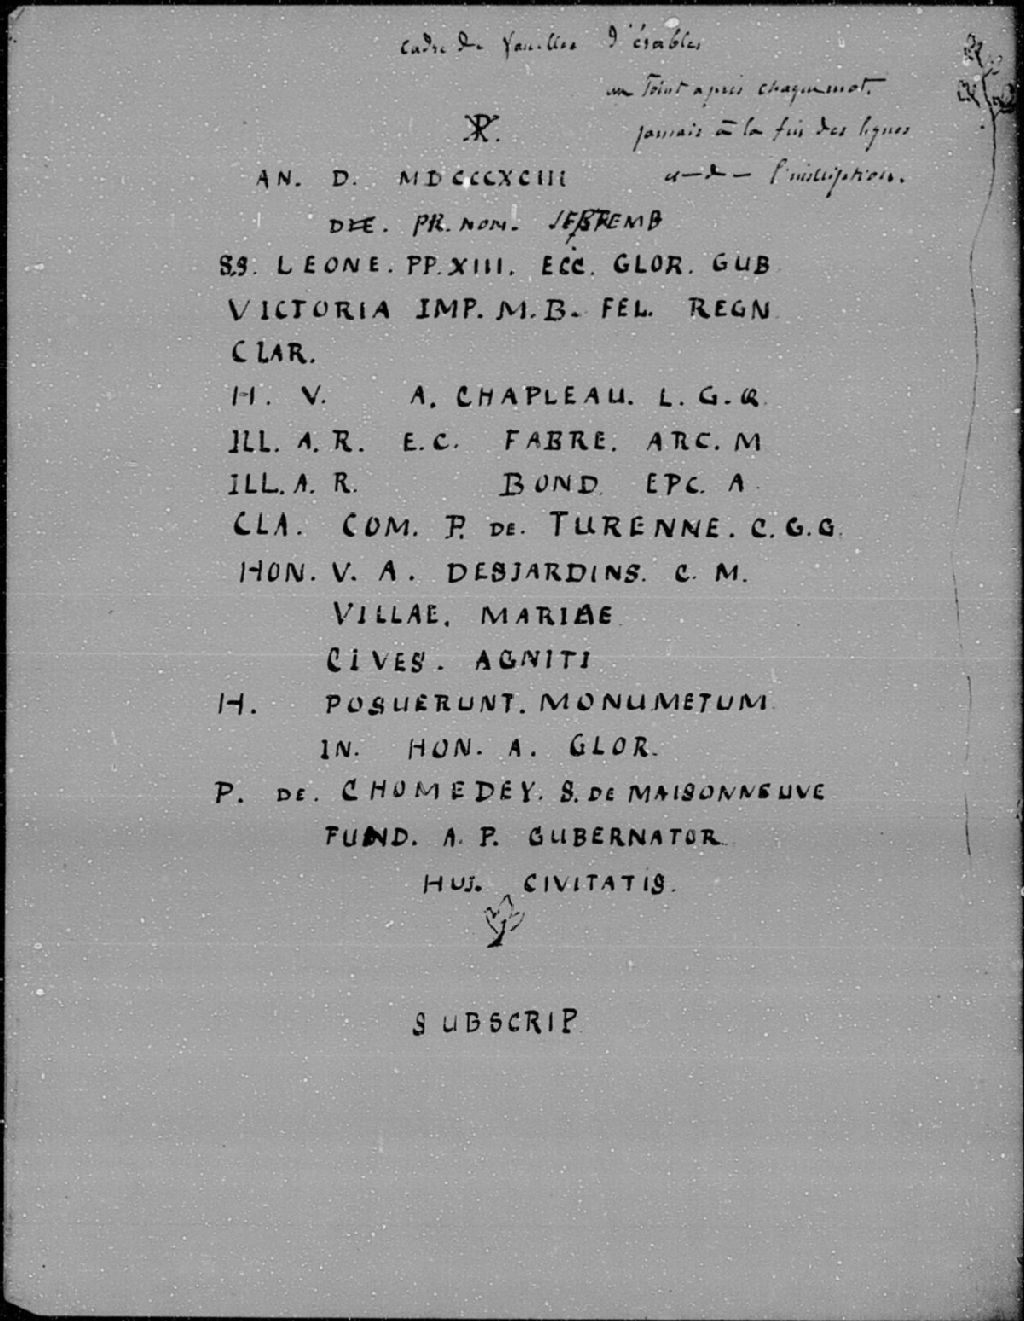 cadre de feuilles d'érables
un point après chaque mot.
jamais à la fin des lignes
☧.
AN. D. MDCCCXCIII
DIE. PR. NON. SEPTEMB
SS. LEONE. PP. XIII. ECC. GLOR. GUB
VICTORIA IMP. M. B. FEL. REGN
CLAR.
H. V. A. CHAPLEAU. L. G. Q.
ILL. A. R. E. C. FABRE. ARC. M
ILL. A. R. BOND EPC. A.
CLA. COM. P. DE. TURENNE. C. G. G.
HON. V. A. DESJARDINS. C. M.
VILLAE. MARIAE
CIVES. AGNITI
H. POSUERUNT. MONUMETUM
IN. HON. A. GLOR.
P. DE. CHOMEDEY. S. DE MAISONNEUVE
FUND. A. P. GUBERNATOR
HUJ. CIVITATIS.
SUBSCRIP